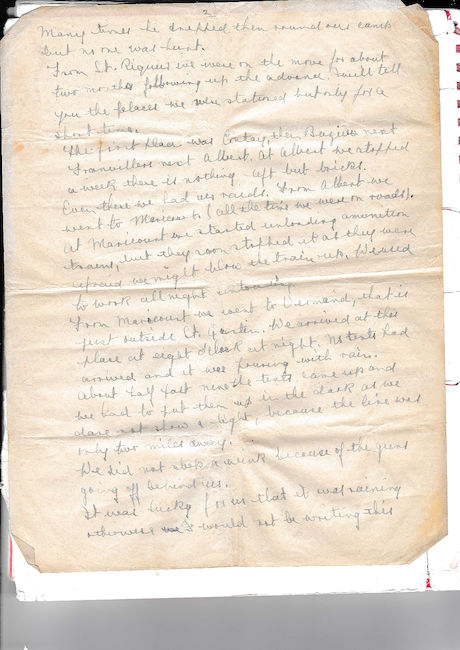 2
Many times he dropped them round our camp
but no one was hurt.
From St. Riquier we were on the move for about
two months following up the advance. I will tell
you the places we were stationed but only for a
short time.
The first place was Contay, then next
Franvillers next Albert. At Albert we stopped
a week there is nothing left but bricks.
Even there we had air raids. From Albert we
went to Maricourt (all the time we were on roads).
At Maricourt we started unloading amunition
trains, but they soon stopped it as they were
afraid we might blow the train up. We used
to work all night unloading.
From Maricourt we went to Vermand, that is
just outside St. Quentin. We arrived at this
place at eight o'clock at night. No tents had
arrived and it was pouring with rain.
About half past nine the tents came up and
we had to put them up in the dark as we
dare not show a light, because the line was
only two miles away.
We did not sleep a wink because of the guns
going off behind us.
It was lucky for us that it was raining
otherwise I would not be writing this